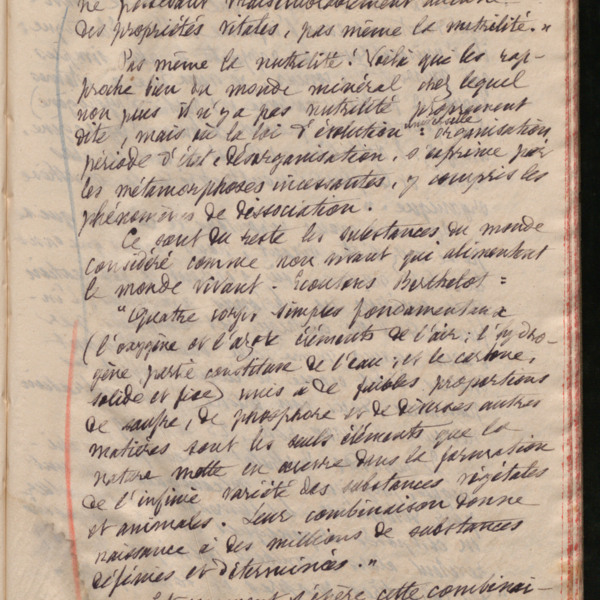 ne possédant vraisemblablement aucune
des propriétés vitales, pas même la nutrilité."
Pas même la nutrilité! Voilà qui les rap-
proche bien du monde minéral chez lequel
non plus il n'y a pas nutrilité proprement
dite, mais où la loi d'évolution universelle: organisation,
période d'état, désorganisation, s'exprime par
les métamorphoses incessantes, y compris les
phénomènes de dissociation.
Ce sont du reste les substances du monde
considéré comme non vivant qui alimentent
le monde vivant. Ecoutons Berthelot:
"Quatre corps simples fondamentaux
(l'oxygène et l'azote éléments de l'air; l'hydro-
gène partie constitutive de l'eau; et le carbone,
solide et fixe) unis à de faibles proportions
de soufre, de phosphore et de diverses autres
matières sont les seuls éléments que la
nature mette en œuvre dans la formation
de l'infinie variété des substances végétales
et animales. Leur combinaison donne
naissance à des millions de substances
définies et déterminées."
cette combinai-